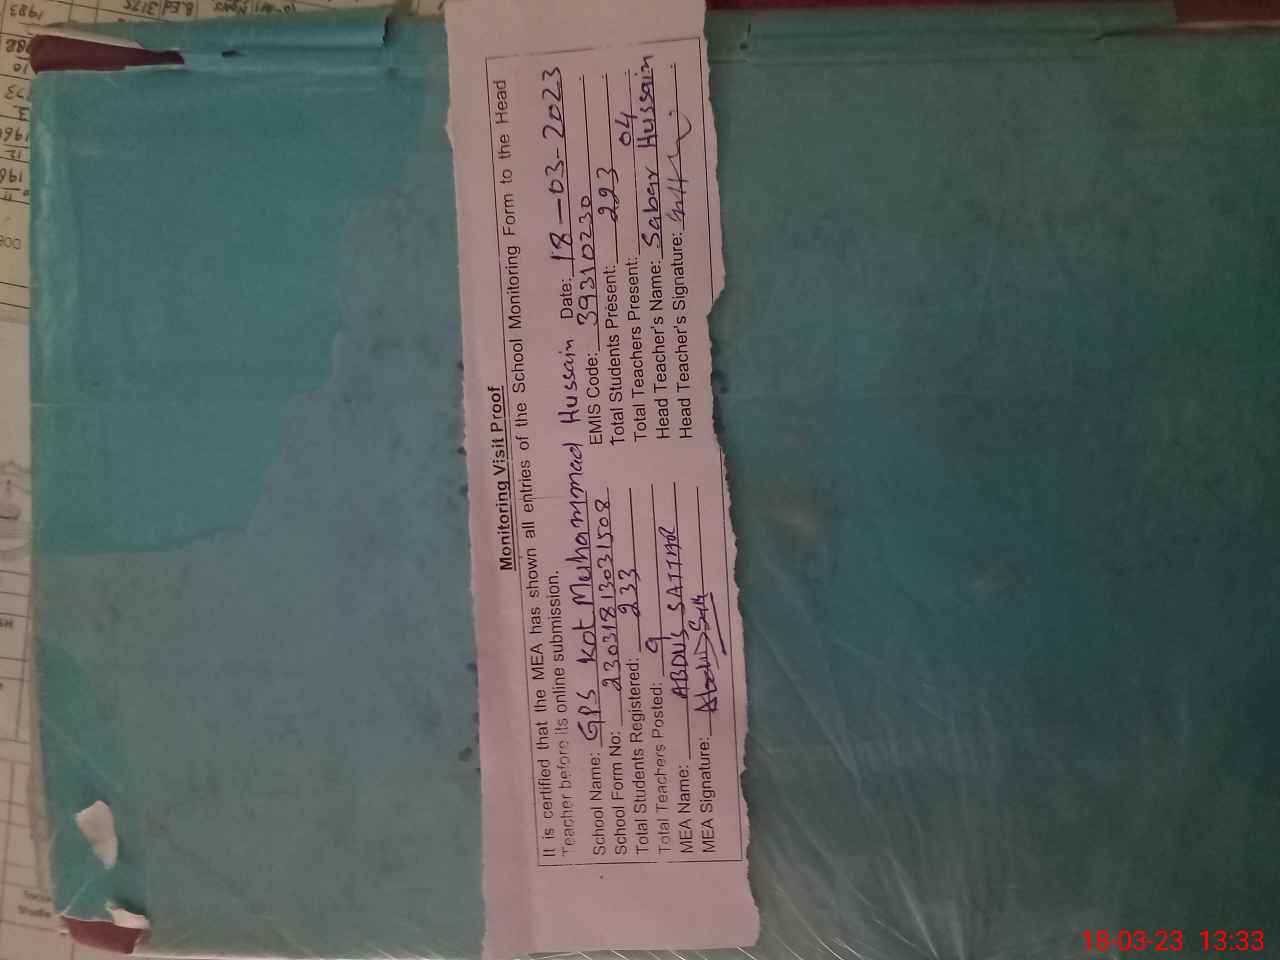 Monitoring Visit Proof
It is certified that the MEA has shown all entries of the School Monitoring Form to the Head
Teacher before its online submission.
School Name: GPS Kot Muhammad Hussain Date: 18-03-2023
School Form No: 23031813031508 EMIS Code: 39310230
Total Students Registered: 233 Total Students Present: 223
Total Teachers Posted: 9 Total Teachers Present: 04
MEA Name: ABDUS SATTAR Head Teacher's Name: Sabar Hussain
MEA Signature: Head Teacher's Signature:
18-03-23 13:33